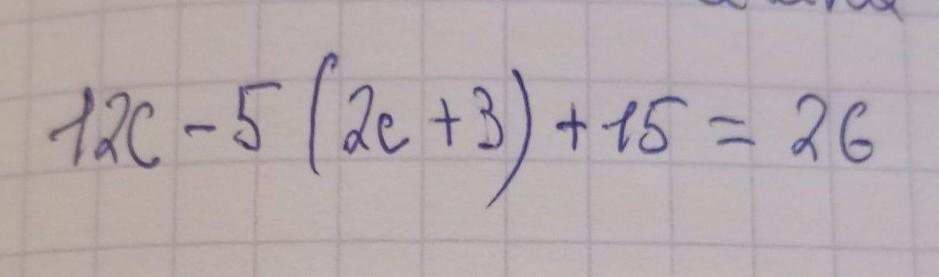 12c - 5 (2c + 3) + 15 = 26